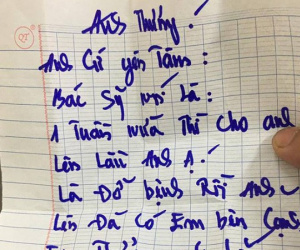 Anh Thương!
Anh Cứ yên Tâm:
Bác Sỹ nói Là:
1 Tuần nữa Thì Cho anh
Lên Lầu Anh Ạ!
Là Đỡ bệnh Rồi Anh
Lên Đã Có Em bên Cạnh